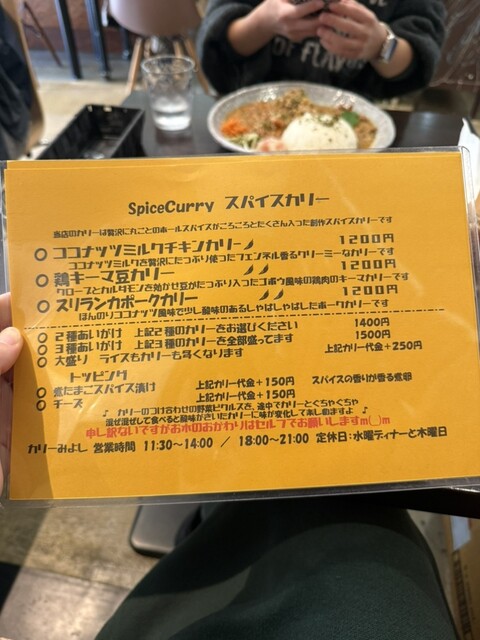 SpiceCurry スパイスカリー
当店のカリーは贅沢に丸ごとのホールスパイスがころころとたくさん入った創作スパイスカリーです
○ ココナッツミルクチキンカリー 1200円
ココナッツミルクを贅沢にたっぷり使ったフェンネル香るクリーミーなカリーです
○ 鶏キーマ豆カリー 1200円
クローブとカルダモンを効かせ豆がたっぷり入ったゴボウ風味の鶏肉のキーマカリーです
○ スリランカポークカリー 1200円
ほんのりココナッツ風味で少し酸味のあるしゃばしゃばしたポークカリーです
○ 2種あいがけ 上記2種のカリーをお選びください 1400円
○ 3種あいがけ 上記3種のカリーを全部盛ってます 1500円
○ 大盛り ライスもカリーも多くなります 上記カリー代金+250円
トッピング
○ 煮たまごスパイス漬け 上記カリー代金+150円 スパイスの香りが香る煮卵
○ チーズ 上記カリー代金+150円
♪ カリーのつけ合わせの野菜ピクルスを、途中でカリーとぐちゃぐちゃ
混ぜ混ぜして食べると酸味がきいたカリーに味が変化して楽しめますよ ♪
申し訳ないですがお水のおかわりはセルフでお願いしますm(_)m
カリーみよし 営業時間 11:30~14:00 / 18:00~21:00 定休日:水曜ディナーと木曜日